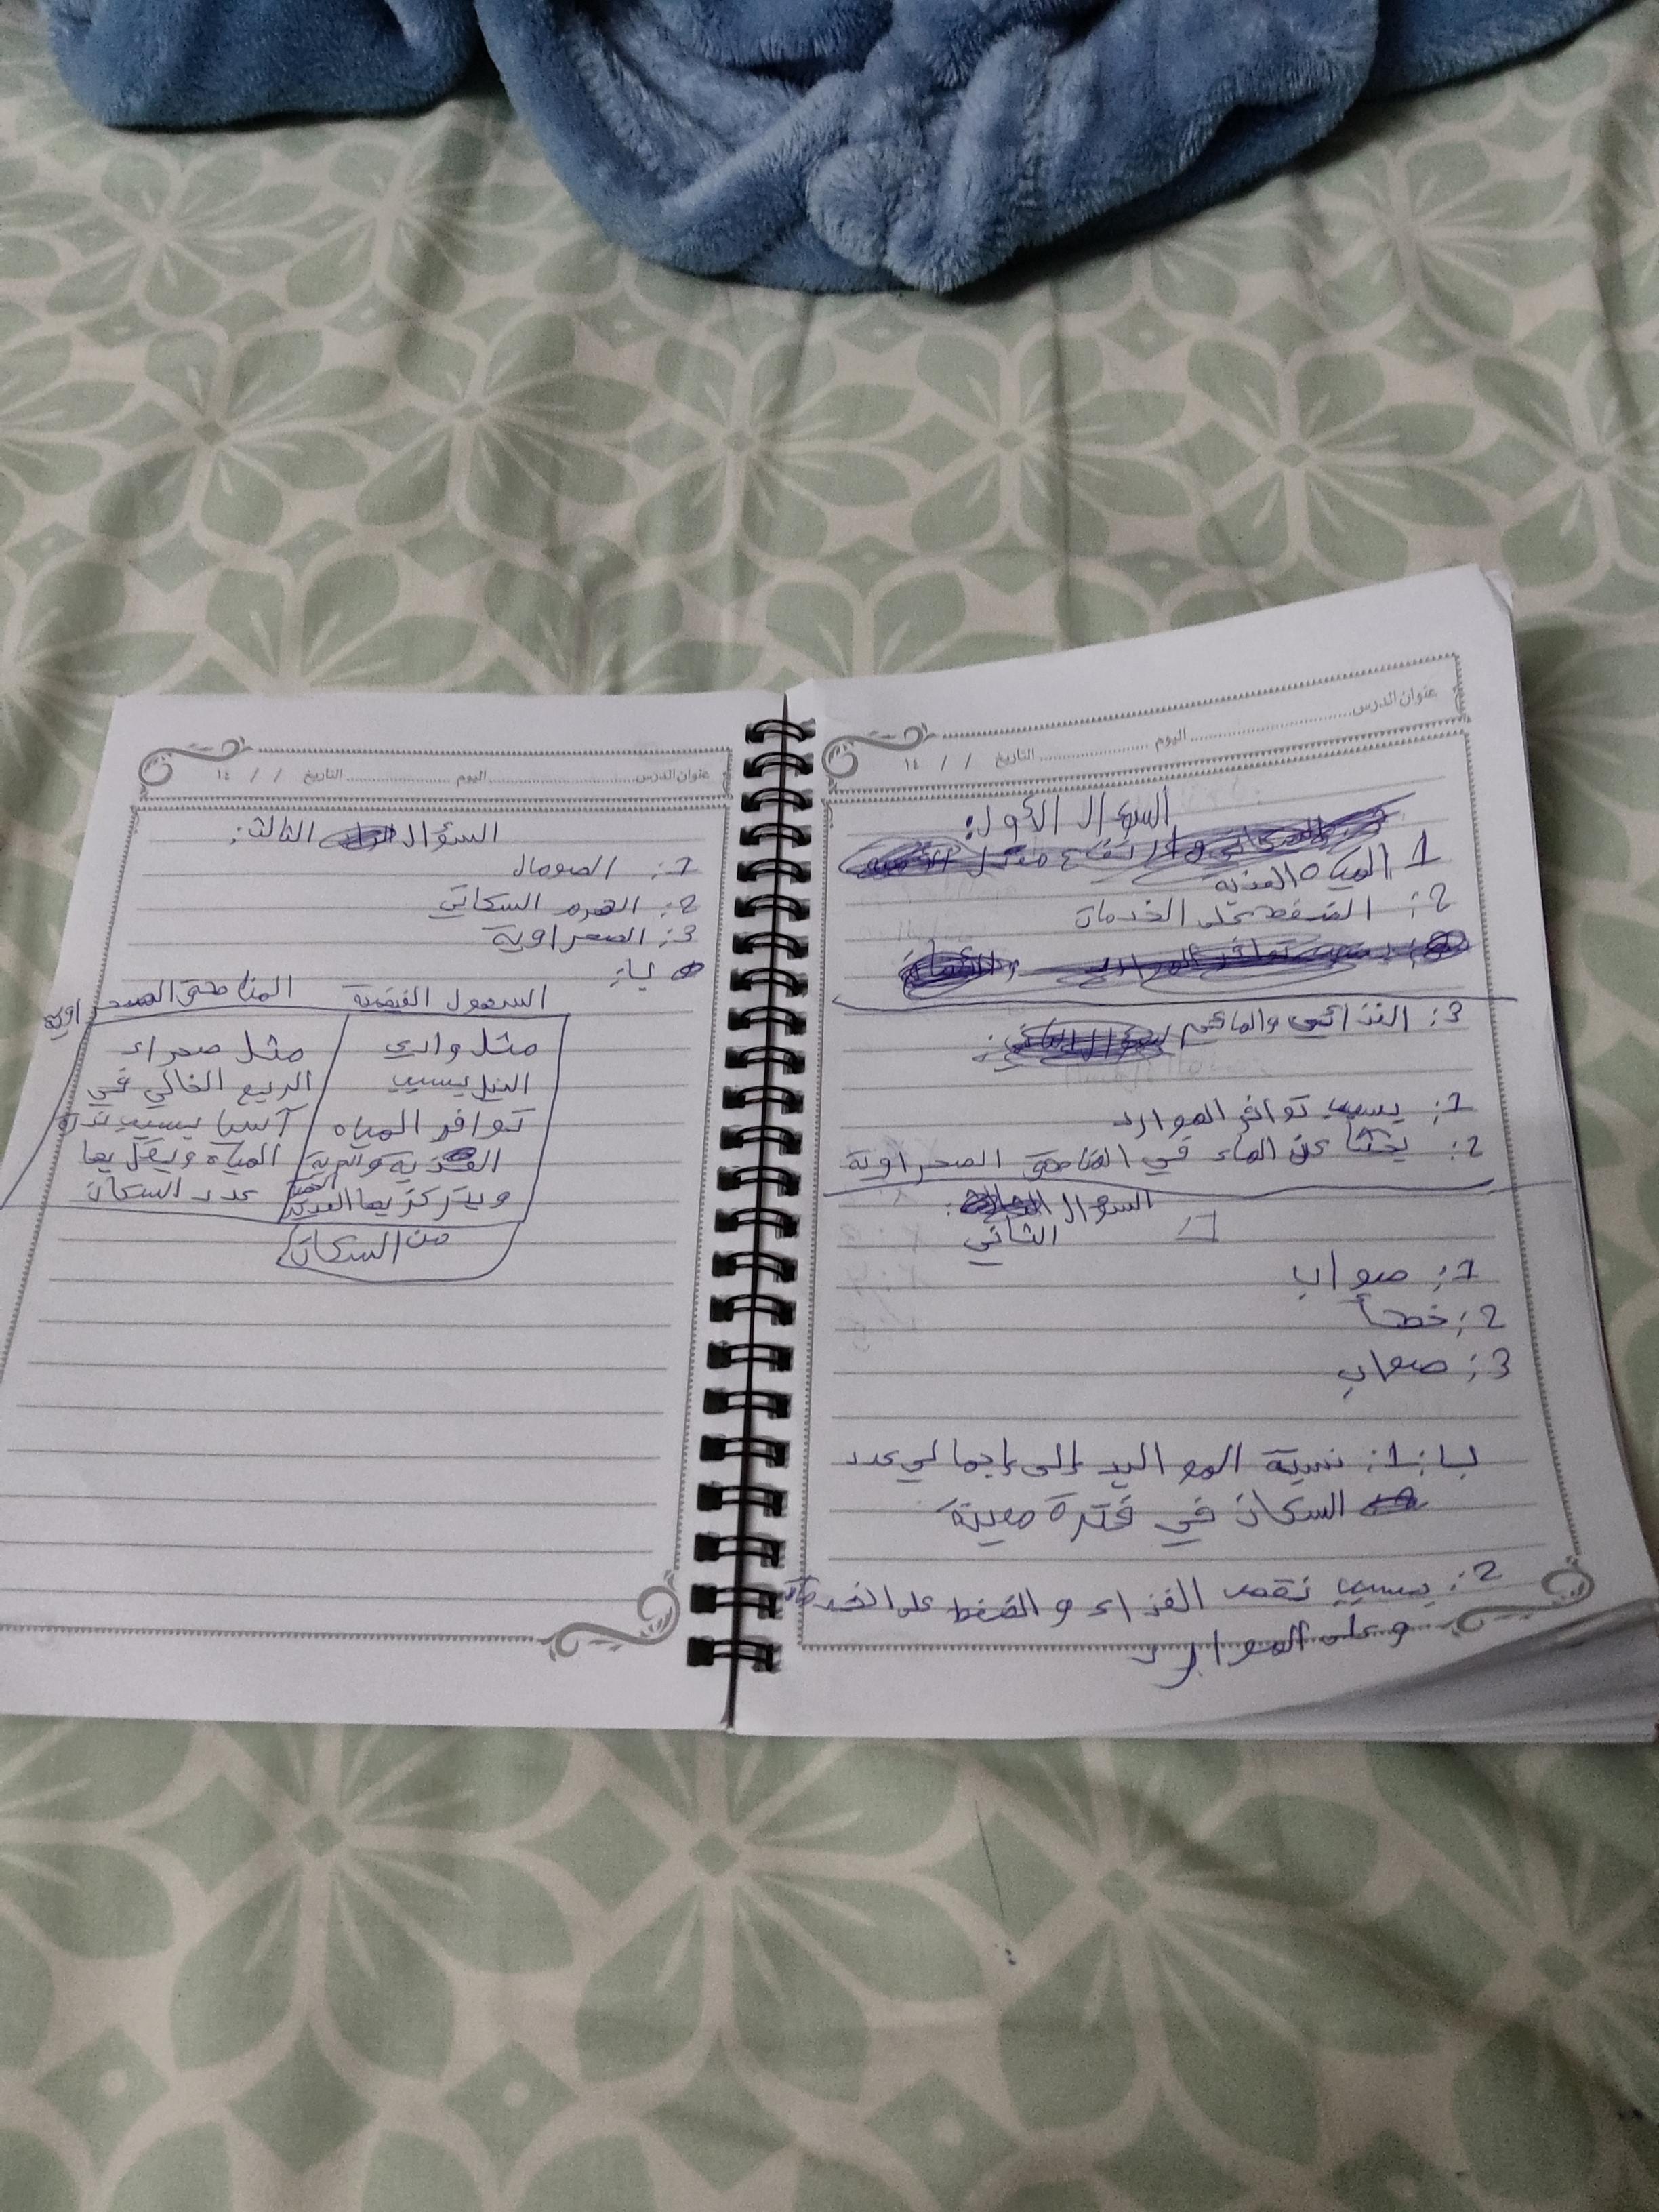 عنوان الدرس اليوم التاريخ / / ١٤
السؤال الأول:
1 المياه العذبة
2: الضغط على الخدمات
3: الغذائي والمائي
1: بسبب توافر الموارد
2: بحثا عن الماء في المناطق الصحراوية
السؤال
الثاني
1: صواب
2: خطأ
3: صواب
ب: 1: نسبة المواليد إلى إجمالي عدد
السكان في فترة معينة
2: بسبب نقص الغذاء و الضغط على الخدمات
وعلى الموارد
عنوان الدرس اليوم التاريخ / / ١٤
السؤال الثالث:
1: الصومال
2: الهرم السكاني
3: الصحراوية
ب:
السهول الفيضية المناطق الصحراوية
مثل وادي مثل صحراء
النيل بسبب الربع الخالي في
توافر المياه آسيا بسبب ندرة
العذبة والتربة المياه ويقل بها
ويتركز بها العديد عدد السكان
من السكان